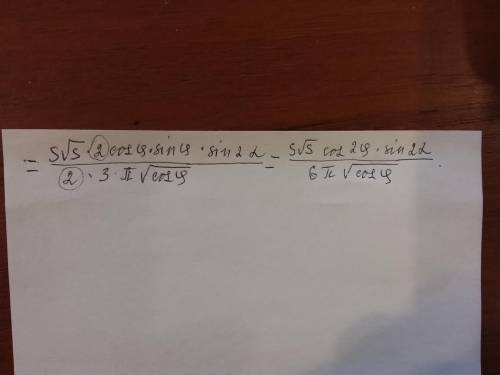 = \frac{S\sqrt{S} \cdot 2 \cos\varphi \cdot \sin\varphi \cdot \sin 2\alpha}{2 \cdot 3 \cdot \pi \sqrt{\cos\varphi}} = \frac{S\sqrt{S} \cos 2\varphi \cdot \sin 2\alpha}{6\pi \sqrt{\cos\varphi}}.